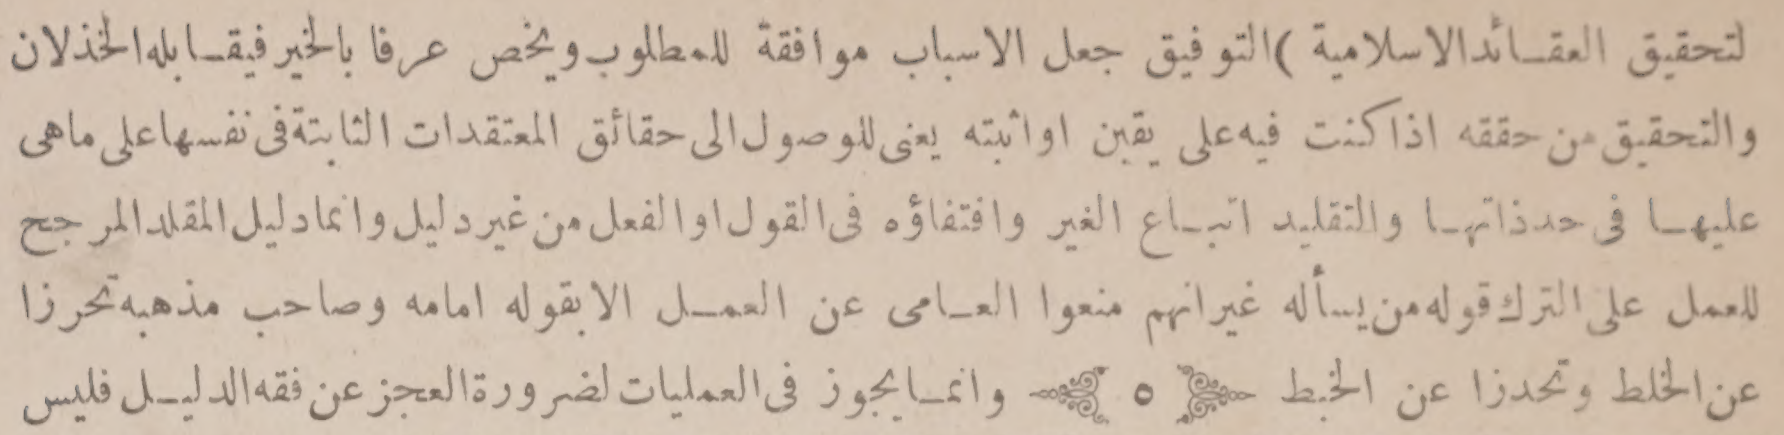 لتحقيق العقائد الاسلامية )التوفيق جعل الاسباب موافقة للمطلوب ويخص عرفا بالخير فيقابله الخذلان
والتحقيق من حققه اذا كنت فيه على يقين او اثبته يعنى للوصول الى حقائق المعتقدات الثابتة فى نفسها على ماهى
عليها فى حد ذاتها والتقليد اتباع الغير واقتفاؤه فى القول او الفعل من غير دليل وانما دليل المقلد المرجح
للعمل على الترك قوله من يسأله غير انهم منعوا العامى عن العمل الا بقوله امامه وصاحب مذهبه تحرزا
عن الخلط وتحذرا عن الخبط ٥ وانما يجوز فى العمليات لضرورة العجز عن فقه الدليل فليس